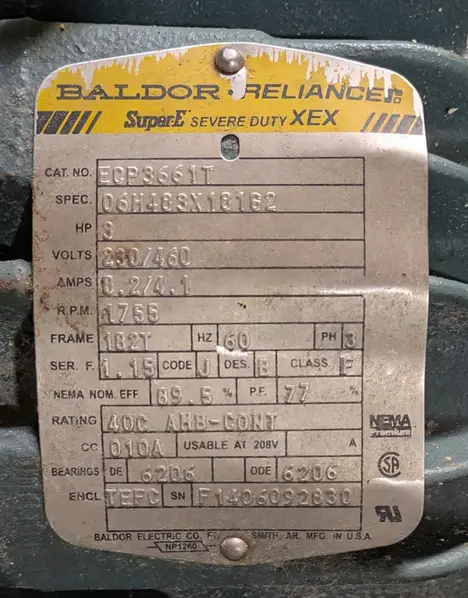 BALDOR · RELIANCER
Super-E SEVERE DUTY XEX
CAT. NO. ECP3661T
SPEC. 06H483X181G2
HP 3
VOLTS 230/460
AMPS 8.2/4.1
R.P.M. 1755
FRAME 182T HZ 60 PH 3
SER. F. 1.15 CODE J DES. B CLASS F
NEMA NOM. EFF 89.5 % P.F. 77 %
RATING 40C AMB-CONT
NEMA Premium
CC 010A USABLE AT 208V A
BEARINGS DE 6206 ODE 6206
SA
ENCL TEFC SN F1406092830
BALDOR ELECTRIC CO. SMITH, AR. MFG. IN U.S.A.
NP1260